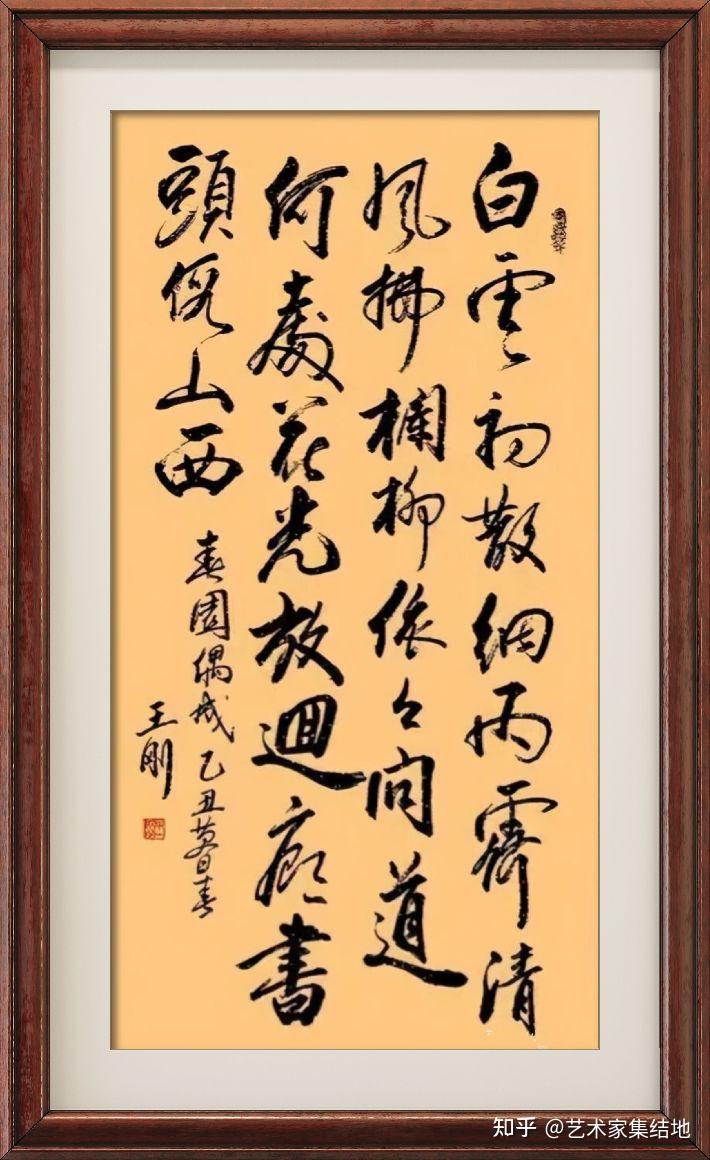 白雲初散細雨霽清
風拂欄柳依々問道
何處花光放迴廊盡
頭假山西
春園偶成 乙丑暮春
王剛
知乎 @艺术家集结地